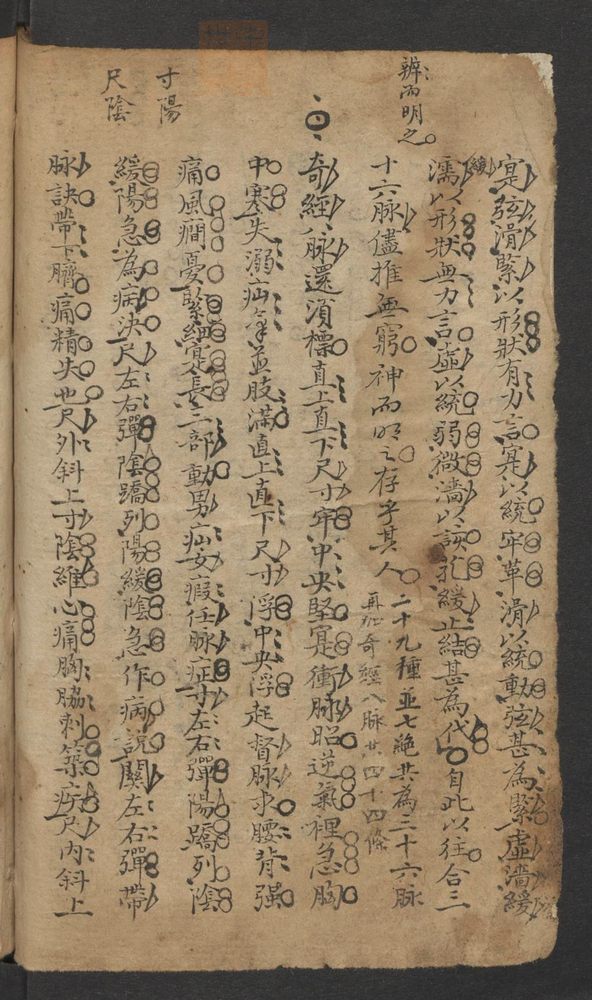 辨而明之
寔弦滑緊以形狀有力言寔以統牢革滑以統動弦甚為緊虛濇緩
緩
濡以形狀無力言虛以統弱微濇以該芤緩止結甚為代自此以往合三
十六脉儘推無窮神而明之存乎其人二十九種並七絶共為三十六脉
再加奇經八脉共四十四條
奇經八脉還須標直上直下尺寸牢中央堅寔衝脉昭逆氣裡急胸
中寒失溺疝並肢滿直上直下尺寸浮中央浮起督脉求腰背强
痛風癇憂緊細寔長三部動男疝女瘕任脉症寸左右彈陽蹻列陰
寸陽
緩陽急為病决尺左右彈陰蹻列陽緩陰急作病說關左右彈帶
尺陰
脉訣帶下臍痛精失也尺外斜上寸陰維心痛胸脇刺築疾尺内斜上